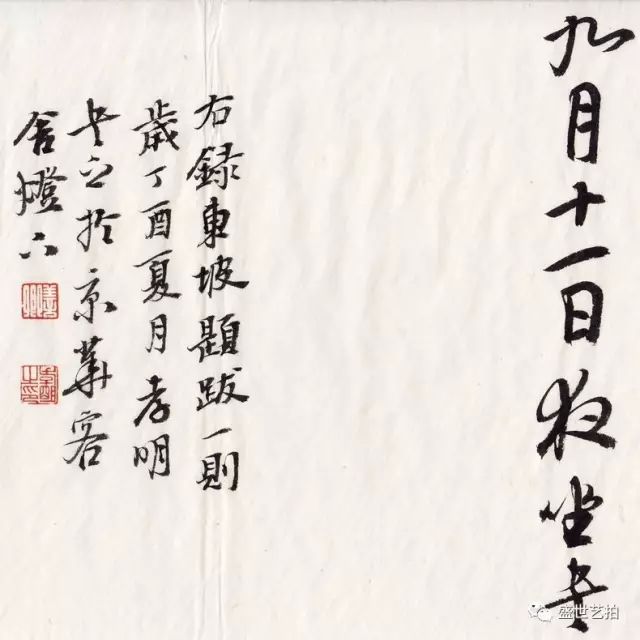 九月十一日夜坐书
右録東坡題跋一則
歳丁酉夏月孝明
书之於京華客
舍燈下
盛世艺拍